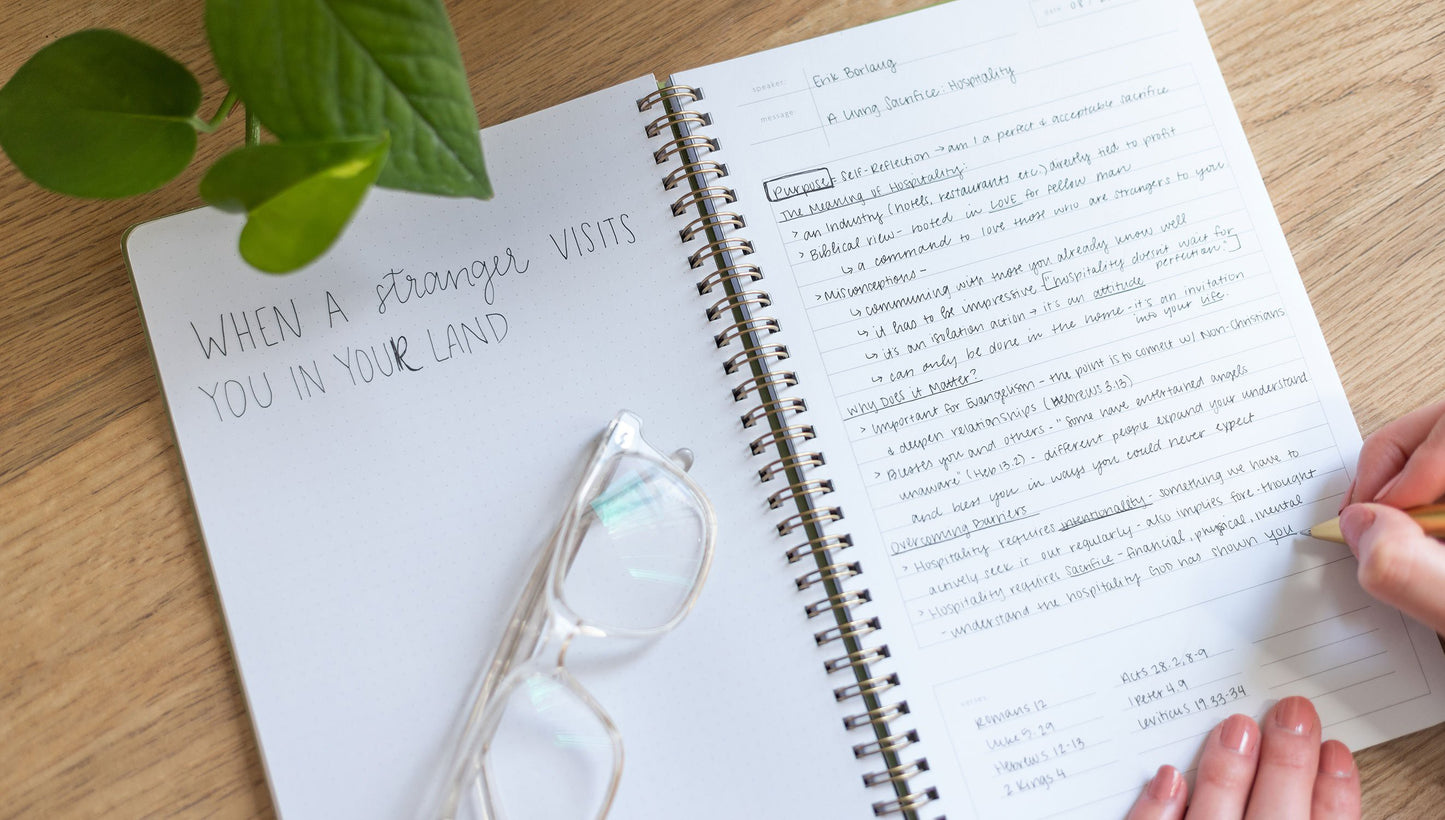 WHEN A stranger VISITS
YOU IN YOUR LAND
date 08 /
speaker: Erik Borlaug
message: A Living Sacrifice: Hospitality
Purpose: Self-Reflection → am I a perfect & acceptable sacrifice
The Meaning of Hospitality:
> an industry (hotels, restaurants etc.) directly tied to profit
> Biblical view - rooted in LOVE for fellow man
↳ a command to love those who are strangers to you
> Misconceptions -
↳ communing with those you already know well
↳ it has to be impressive ["hospitality doesn't wait for perfection."]
↳ its an isolation action → it's an attitude
↳ can only be done in the home - it's an invitation into your life.
Why Does it Matter?
> Important for Evangelism - the point is to connect w/ Non-Christians
& deepen relationships (Hebrews 3.13)
> Blesses you and others - "Some have entertained angels
unaware" (Heb 13.2) - different people expand your understand
and bless you in ways you could never expect
Overcoming Barriers
> Hospitality requires intentionality - something we have to
actively seek it out regularly - also implies fore-thought
> Hospitality requires Sacrifice - financial, physical, mental
- understand the hospitality God has shown you
verses:
Romans 12
Luke 5.29
Hebrews 12-13
2 Kings 4
Acts 28.2, 8-9
1 Peter 4.9
Leviticus 19.33-34